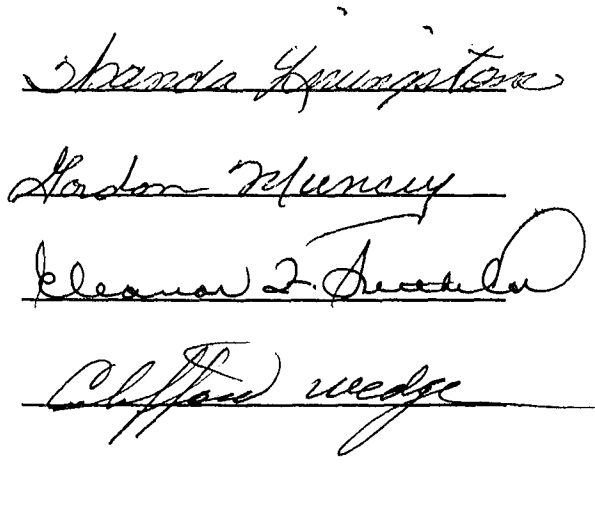 Livingston
Gordon Muncey
Eleanor F.
Clifford Wedge